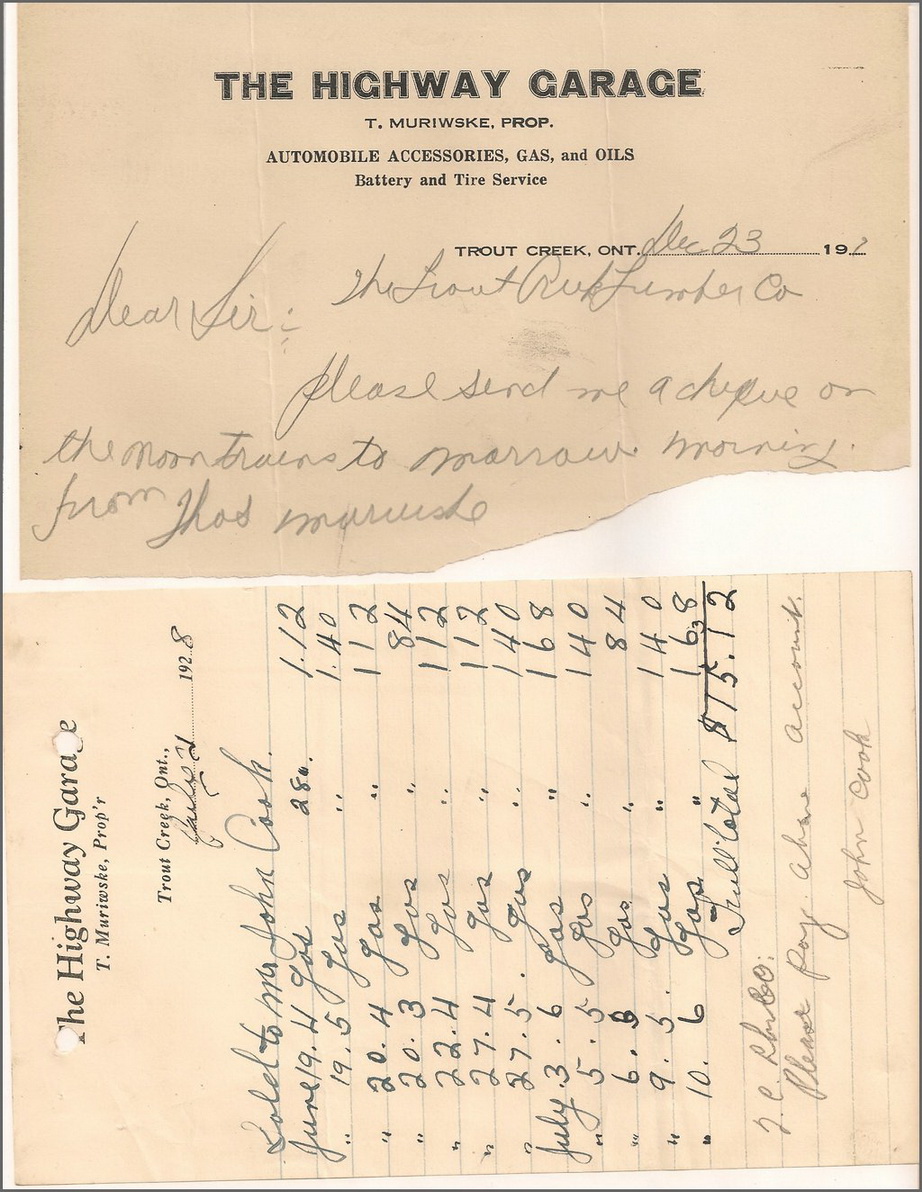 THE HIGHWAY GARAGE
T. MURIWSKE, PROP.
AUTOMOBILE ACCESSORIES, GAS, and OILS
Battery and Tire Service
TROUT CREEK, ONT. Dec 23 19
The Trout Creek Lumber Co
Dear Sir:
please send me a cheque on
the noon trains to morrow morning.
from Thos muriwske
The Highway Garage
T. Muriwske, Prop'r
Trout Creek, Ont.,
1928
Sold to Mr John Cook.
June 19. 4 gas 28c. 1.12
" 19. 5 gas " 1.40
" 20. 4 gas " 112
" 20. 3 gas " 84
" 22. 4 gas " 112
" 27. 4 gas " 112
" 27. 5. gas " 140
July. 3. 6 gas " 168
" 5. 5 gas 140
" 6. 3 gas " 84
" 9. 5. gas " 140
" 10. 6 gas " 168
Full total $15.12
Please Pay. above account.
John Cook